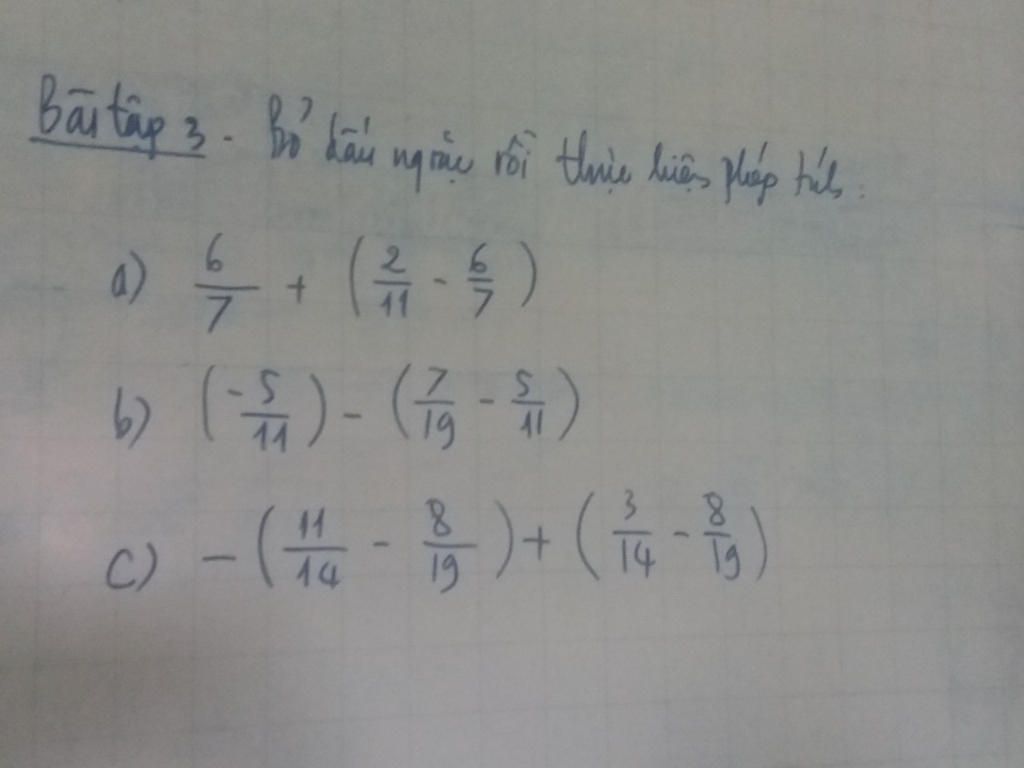 Bài tập 3. Bỏ dấu ngoặc rồi thực hiện phép tính:
a) 6/7 + (2/11 - 6/7)
b) (-5/11) - (7/19 - 5/11)
c) -(11/14 - 8/19) + (3/14 - 8/19)